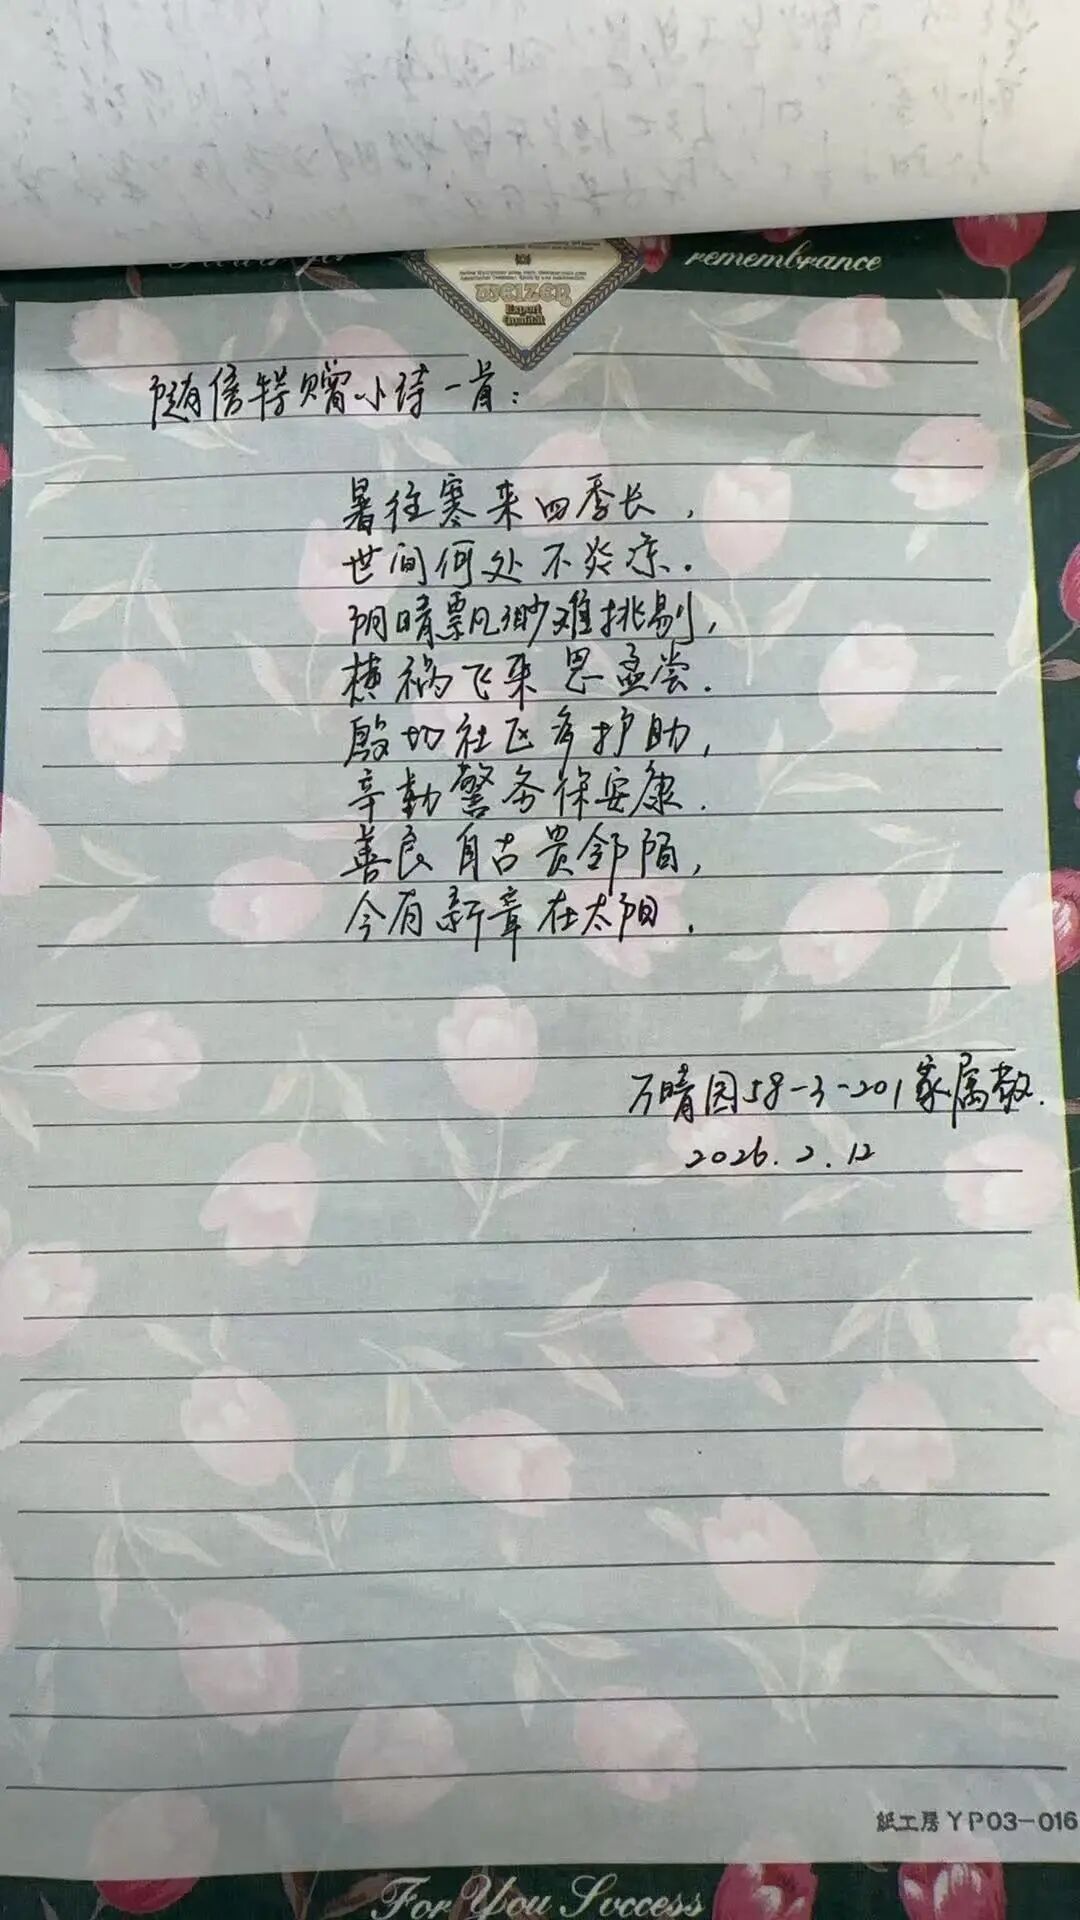 remembrance
WEIZER
Export
Qualität
随信特赠小诗一首:
暑往寒来四季长,
世间何处不炎凉.
阴晴飘渺难挑剔,
横祸飞来思孟尝.
殷切社区多护助,
辛勤警务保安康.
善良自古贵邻陌,
今有新章在太阳.
万晴园58-3-201家属敬.
2026.2.12
紙工房 YP03-016
For You Success